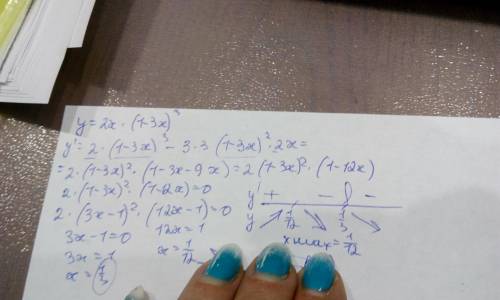 y = 2x · (1-3x)³
y' = 2 · (1-3x)³ - 3·3 (1-3x)² · 2x =
= 2 · (1-3x)² · (1-3x-9x) = 2 (1-3x)² · (1-12x)
2 · (1-3x)² · (1-12x) = 0
2 · (3x-1)² · (12x-1) = 0
3x-1=0 12x=1
3x=1 x=1/12
x=1/3
y' + - -
y 1/12 1/3
x max = 1/12